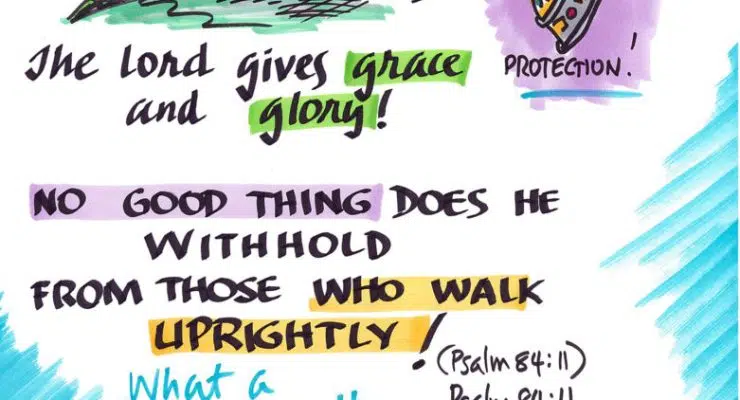 The Lord gives grace
and glory!
PROTECTION!
NO GOOD THING DOES HE
WITHHOLD
FROM THOSE WHO WALK
UPRIGHTLY!
(Psalm 84:11)
What a
Psalm 84:11